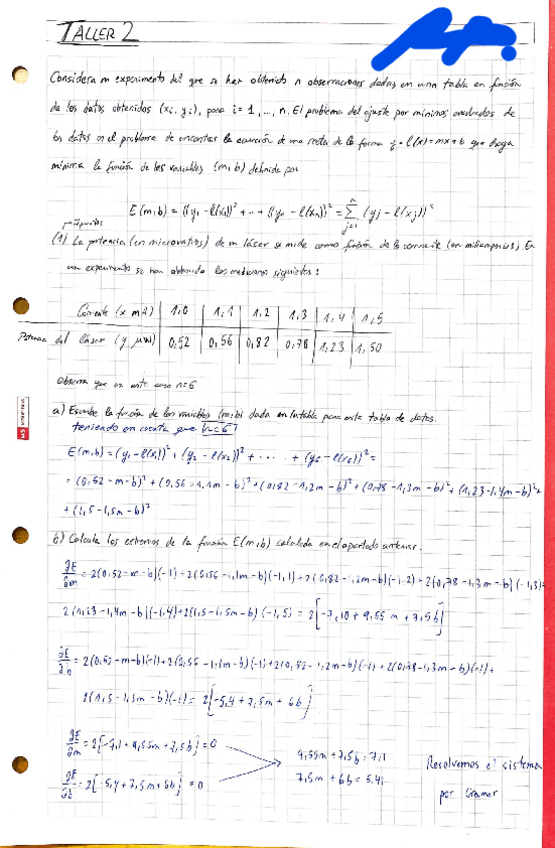 TALLER 2
Considera un experimento del que se han obtenido n observaciones dadas en una tabla en función
de los datos obtenidos (xi, yi), para i= 1, ..., n. El problema del ajuste por mínimos cuadrados de
los datos es el problema de encontrar la ecuación de una recta de la forma y = l(x)=mx+b que haga
mínima la función de las variables (m,b) definida por
E(m,b) = (y₁ - l(x₁))² + ... + (yₙ - l(xₙ))² = Σ (yj - l(xj))²
(1) La potencia (en microvatios) de un láser se mide como función de la corriente (en miliamperios). En
un experimento se han obtenido las mediciones siguientes:
Corriente (x mA) | 1,0 | 1,1 | 1,2 | 1,3 | 1,4 | 1,5
Potencia del láser (y μW) | 0,52 | 0,56 | 0,82 | 0,78 | 1,23 | 1,50
Observa que en este caso n=6
a) Escribe la función de las variables (m,b) dada en la tabla para esta tabla de datos.
teniendo en cuenta que n=6
E(m,b) = (y₁ - l(x₁))² + (y₂ - l(x₂))² + ..... + (y₆ - l(x₆))² =
= (0,52 - m - b)² + (0,56 - 1,1m - b)² + (0,82 - 1,2m - b)² + (0,78 - 1,3m - b)² + (1,23 - 1,4m - b)² +
+ (1,5 - 1,5m - b)²
b) Calcula los extremos de la función E(m,b) calculada en el apartado anterior.
∂E/∂m = 2(0,52 - m - b)(-1) + 2(0,56 - 1,1m - b)(-1,1) + 2(0,82 - 1,2m - b)(-1,2) + 2(0,78 - 1,3m - b)(-1,3)+
2(1,23 - 1,4m - b)(-1,4) + 2(1,5 - 1,5m - b)(-1,5) = 2[-7,10 + 9,55m + 7,5b]
2(0,52 - m - b)(-1) + 2(0,56 - 1,1m - b)(-1) + 2(0,82 - 1,2m - b)(-1) + 2(0,78 - 1,3m - b)(-1) +
2(1,5 - 1,5m - b)(-1) = 2[-5,4 + 7,5m + 6b]
∂E/∂m = 2[-7,1 + 9,55m + 7,5b] = 0
9,55m + 7,5b = 7,1
∂E/∂b = 2[-5,4 + 7,5m + 6b] = 0
7,5m + 6b = 5,41
Resolvemos el sistema
por Cramer